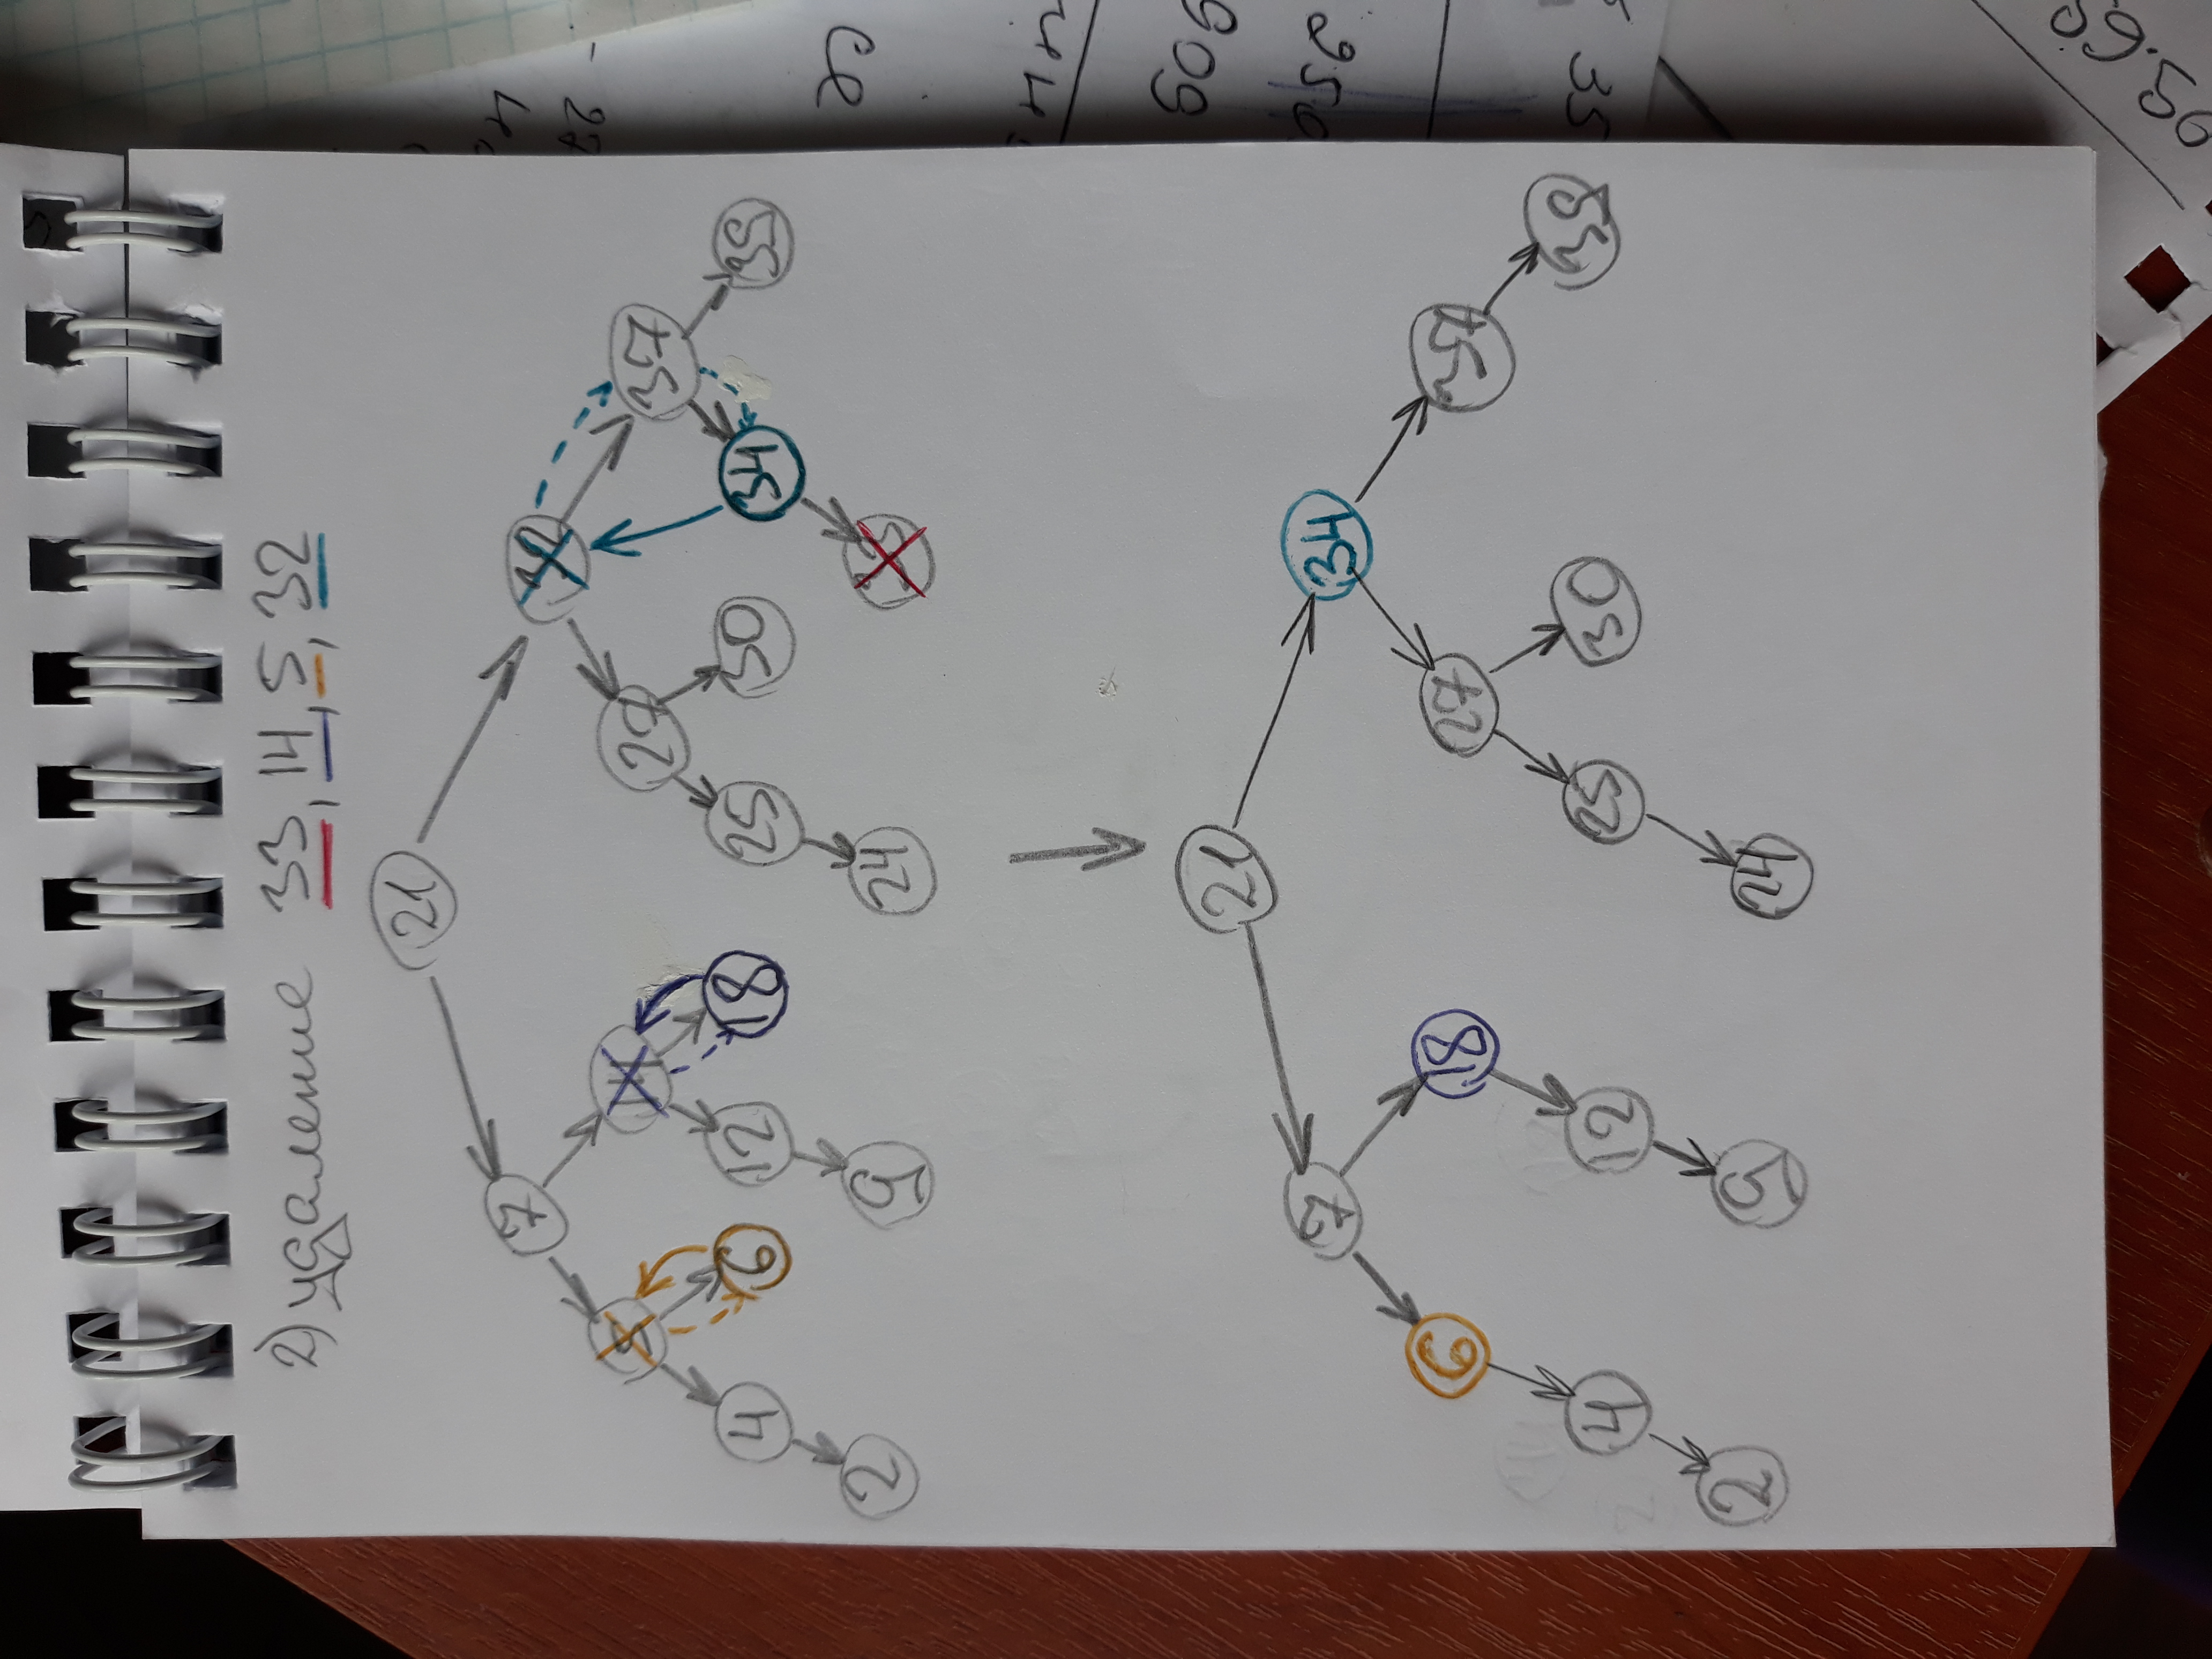 2) удаление 33, 14, 5, 32
21
7 32
5 14 27 37
4 6 12 18 25 30 34 39
2 9 24 33
21
7 34
6 18 27 37
4 12 25 30 39
2 9 24